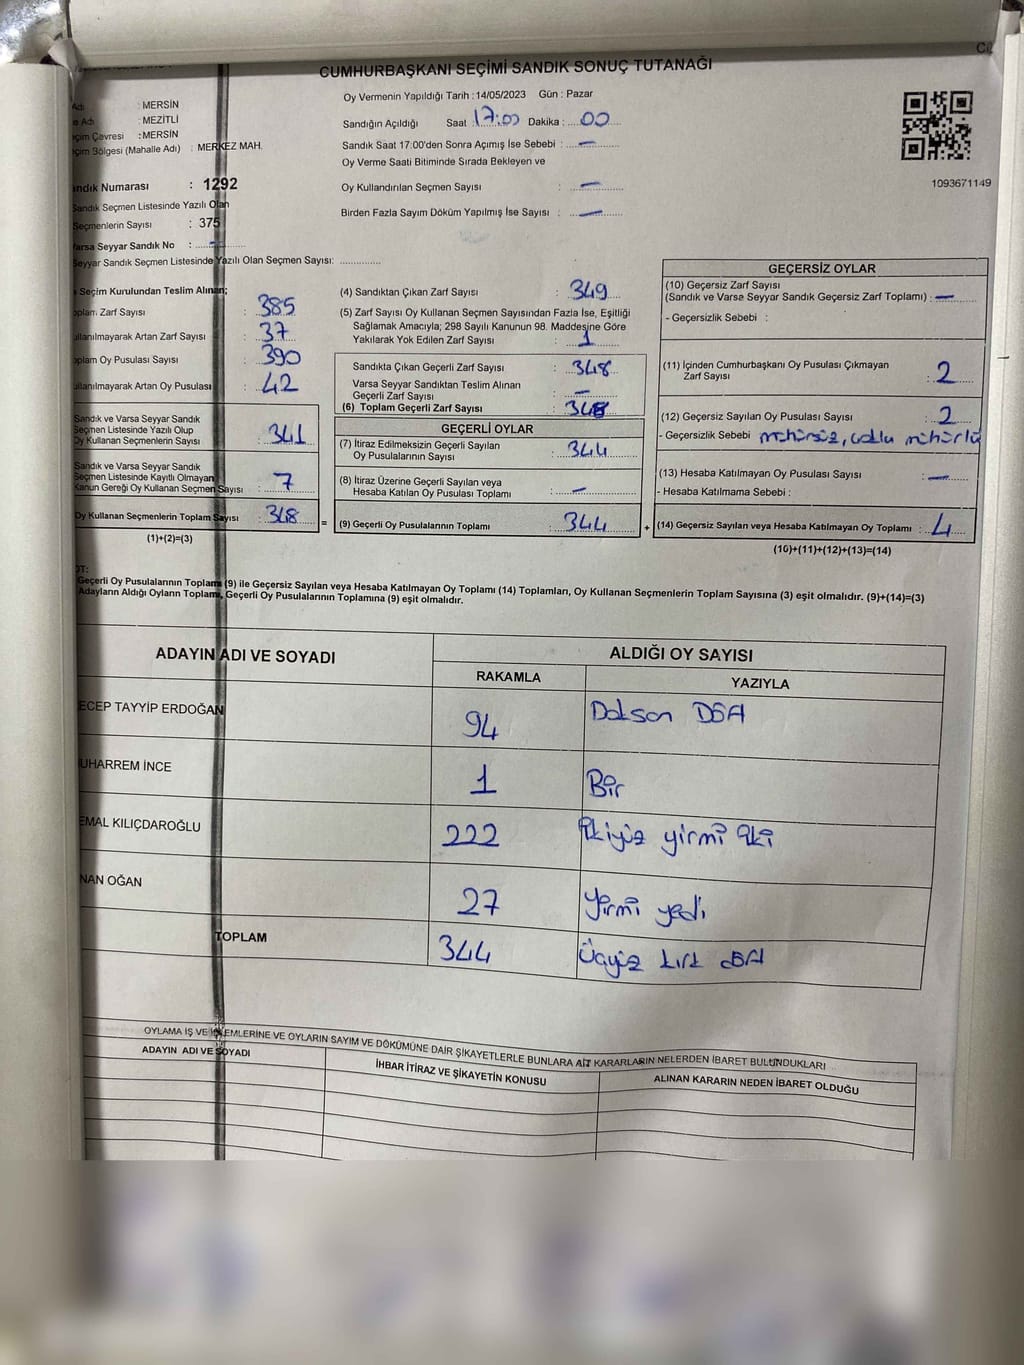 CUMHURBAŞKANI SEÇİMİ SANDIK SONUÇ TUTANAĞI
Oy Vermenin Yapıldığı Tarih : 14/05/2023 Gün : Pazar
Sandığın Açıldığı Saat : 17:00 Dakika : 00
Sandık Saat 17:00'den Sonra Açımış İse Sebebi : —
Oy Verme Saati Bitiminde Sırada Bekleyen ve
Oy Kullandırılan Seçmen Sayısı : —
Birden Fazla Sayım Döküm Yapılmış İse Sayısı : —
Adı : MERSİN
e Adı : MEZİTLİ
çim Çevresi : MERSİN
çim Bölgesi (Mahalle Adı) : MERKEZ MAH.
andık Numarası : 1292
Sandık Seçmen Listesinde Yazılı Olan
Seçmenlerin Sayısı : 375
Varsa Seyyar Sandık No : —
Seyyar Sandık Seçmen Listesinde Yazılı Olan Seçmen Sayısı:
1093671149
Seçim Kurulundan Teslim Alınan;
oplam Zarf Sayısı : 385
ullanılmayarak Artan Zarf Sayısı : 37
oplam Oy Pusulası Sayısı : 390
ullanılmayarak Artan Oy Pusulası : 42
Sandık ve Varsa Seyyar Sandık
Seçmen Listesinde Yazılı Olup
Oy Kullanan Seçmenlerin Sayısı : 341
Sandık ve Varsa Seyyar Sandık
Seçmen Listesinde Kayıtlı Olmayan
Kanun Gereği Oy Kullanan Seçmen Sayısı : 7
Oy Kullanan Seçmenlerin Toplam Sayısı : 348 =
(1)+(2)=(3)
(4) Sandıktan Çıkan Zarf Sayısı : 349
(5) Zarf Sayısı Oy Kullanan Seçmen Sayısından Fazla İse, Eşitliği
Sağlamak Amacıyla; 298 Sayılı Kanunun 98. Maddesine Göre
Yakılarak Yok Edilen Zarf Sayısı : 1
Sandıkta Çıkan Geçerli Zarf Sayısı : 348
Varsa Seyyar Sandıktan Teslim Alınan
Geçerli Zarf Sayısı : —
(6) Toplam Geçerli Zarf Sayısı : 348
GEÇERLİ OYLAR
(7) İtiraz Edilmeksizin Geçerli Sayılan
Oy Pusulalarının Sayısı : 344
(8) İtiraz Üzerine Geçerli Sayılan veya
Hesaba Katılan Oy Pusulası Toplamı : —
(9) Geçerli Oy Pusulalarının Toplamı : 344 +
GEÇERSİZ OYLAR
(10) Geçersiz Zarf Sayısı
(Sandık ve Varsa Seyyar Sandık Geçersiz Zarf Toplamı) : —
- Geçersizlik Sebebi :
(11) İçinden Cumhurbaşkanı Oy Pusulası Çıkmayan
Zarf Sayısı : 2
(12) Geçersiz Sayılan Oy Pusulası Sayısı : 2
- Geçersizlik Sebebi mühürsüz, çoklu mühürlü
(13) Hesaba Katılmayan Oy Pusulası Sayısı : —
- Hesaba Katılmama Sebebi :
(14) Geçersiz Sayılan veya Hesaba Katılmayan Oy Toplamı : 4
(10)+(11)+(12)+(13)=(14)
OT:
Geçerli Oy Pusulalarının Toplamı (9) ile Geçersiz Sayılan veya Hesaba Katılmayan Oy Toplamı (14) Toplamları, Oy Kullanan Seçmenlerin Toplam Sayısına (3) eşit olmalıdır. (9)+(14)=(3)
Adayların Aldığı Oyların Toplamı, Geçerli Oy Pusulalarının Toplamına (9) eşit olmalıdır.
ADAYIN ADI VE SOYADI ALDIĞI OY SAYISI
RAKAMLA YAZIYLA
ECEP TAYYİP ERDOĞAN 94 Doksan Dört
UHARREM İNCE 1 Bir
EMAL KILIÇDAROĞLU 222 İkiyüz yirmi iki
NAN OĞAN 27 Yirmi yedi
TOPLAM 344 Üçyüz kırk dört
OYLAMA İŞ VE İŞLEMLERİNE VE OYLARIN SAYIM VE DÖKÜMÜNE DAİR ŞİKAYETLERLE BUNLARA AİT KARARLARIN NELERDEN İBARET BULUNDUKLARI
ADAYIN ADI VE SOYADI İHBAR İTİRAZ VE ŞİKAYETİN KONUSU ALINAN KARARIN NEDEN İBARET OLDUĞU